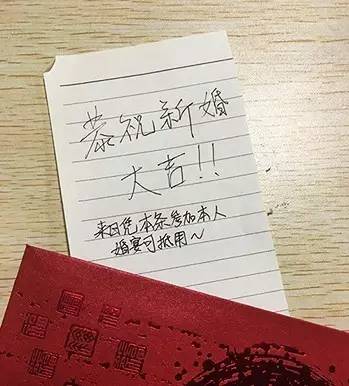 恭祝新婚
大吉!!
来日凭本条参加本人
婚宴可抵用~